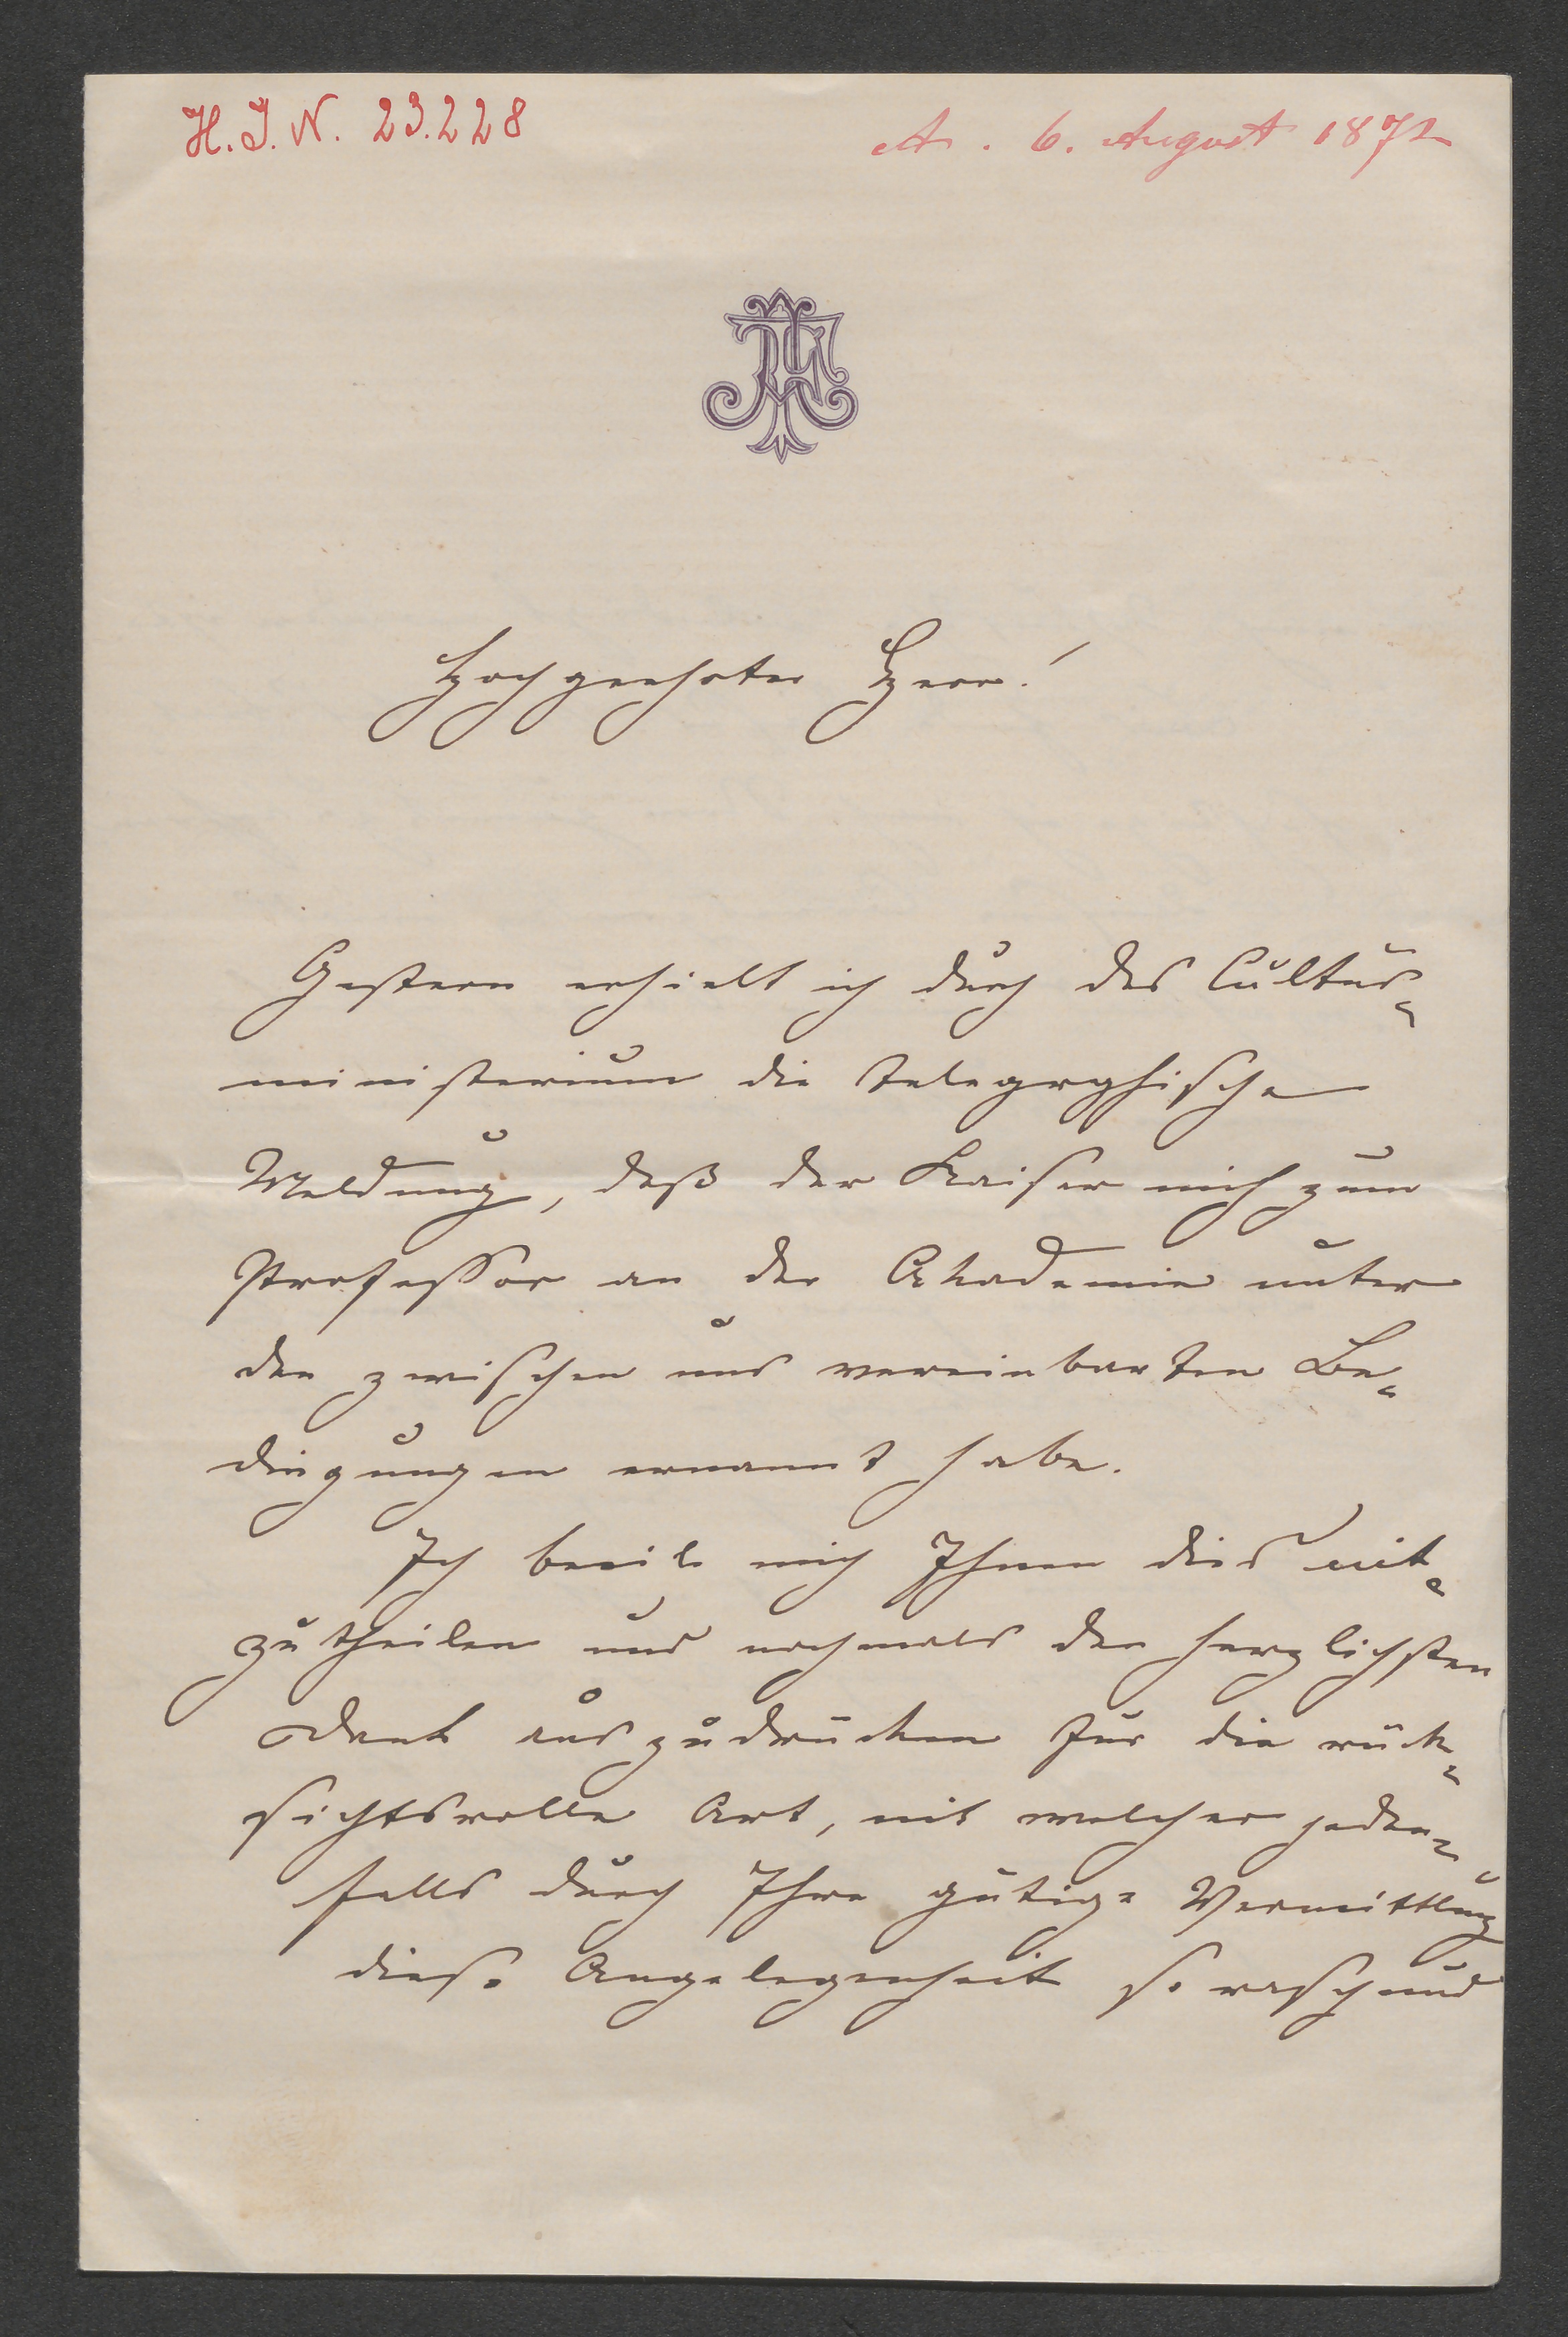 H. I. N. 23.228
A. 6. August 1872
Hochgeehrter Herr!
Gestern erhielt ich durch das Cultus-
ministerium die telegrphische
Meldung, daß der Kaiser mich zum
Professor an der Akademie unter
den zwischen uns vereinbarten Be-
dingungen ernannt habe.
Ich beeile mich Ihnen dies mit-
zutheilen und nochmals den herzlichsten
Dank auszudrücken für die rück-
sichtsvolle Art, mit welcher jeden-
falls durch Ihre gütige Vermittlung
diese Angelegenheit so rasch und